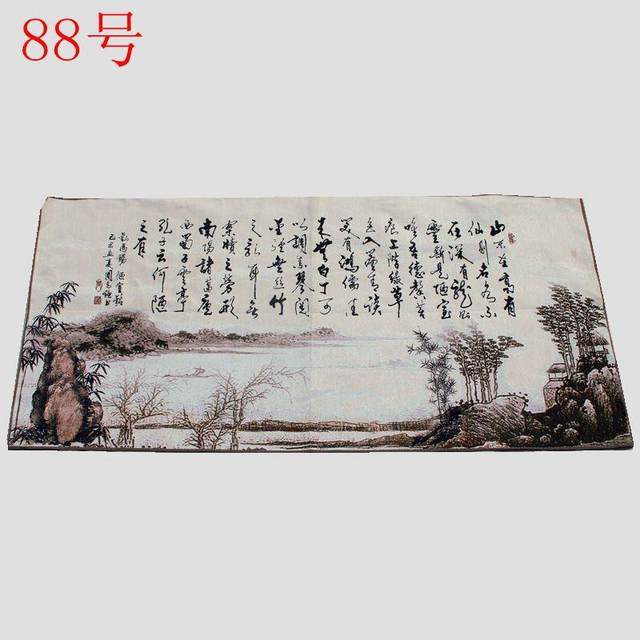 88号
山不在高有
仙則名水不
在深有龍則
靈斯是陋室
唯吾德馨苔
痕上階綠草
色入簾青談
笑有鴻儒往
来無白丁可
以調素琴閱
金經無絲竹
之亂耳無
案牘之勞形
南陽諸葛廬
西蜀子雲亭
孔子云何陋
之有
劉禹錫陋室銘